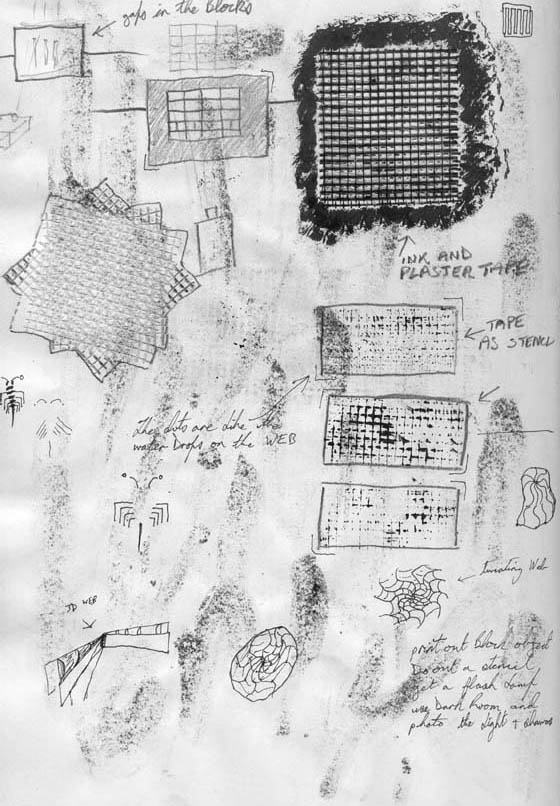 gaps in the Blocks
INK AND
PLASTER TAPE
TAPE
AS STENCIL
The dots are like the
water Drops on the WEB
Web
3D WEB
print out Block
out a stencil
Get a flash Lamp
use Dark Room and
photo the Light +